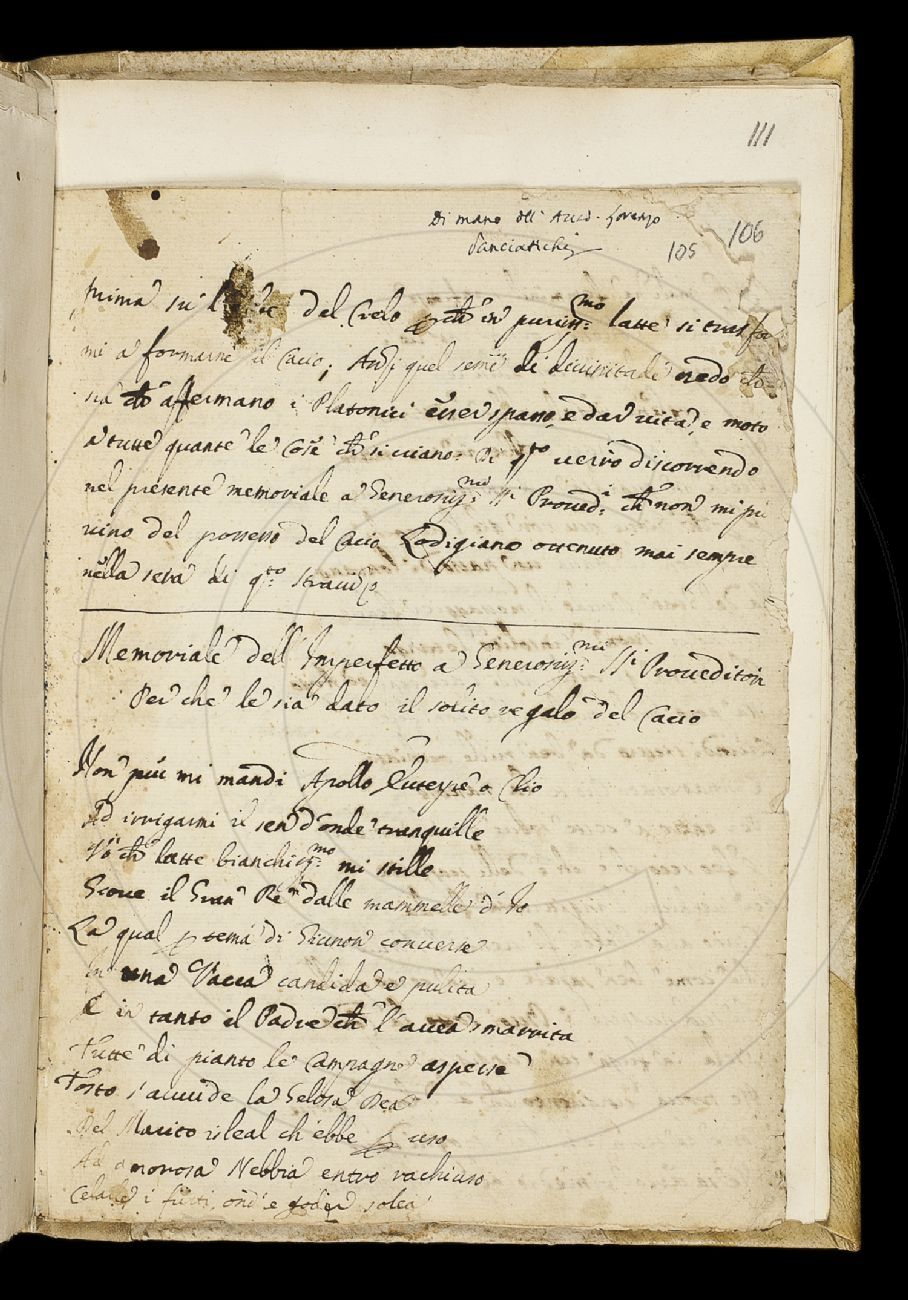 111
Di mano dell' Accad. Lorenzo
Panciatichi
105 106
prima su del Cielo ꝑchè in puriss:mo latte si trasfor
mi a formarne il Cacio; Anzi quel seme di divinitade credo io
sia chè affermano i Platonici esser spano, e dar vita, e moto
a tutte quante le Cose che si viano. Di q:to verrò discorrendo
nel presente memoriale a Generosiss:mi SS.i Proued:i che non mi pri
vino del possesso del Cacio Lodigiano ottenuto mai sempre
nella sera di q:to stravizo
Memoriale dell' Imperfetto a Generosiss:mi SS.i Proueditori
Perche le sia dato il solito regalo del Cacio
Non più mi mandi Apollo Euterpe o Clio
Ad irrigarmi il sen d'onde tranquille
Vò che latte bianchiss:mo mi stille
Giove il Gran Re dalle mammelle d' Io
La qual ꝑ tema di Giunon converse
In una Vacca candida e pulita
E in tanto il Padre che l' avea smarrita
Tutte di pianto le Campagne asperse
Tosto s' avvide la Gelosa Dea
Del Marito disleal ch' ebbe ꝑ uso
Ad amorosa Nebbia entro rachiuso
Celare i furti, ond' e goder solea